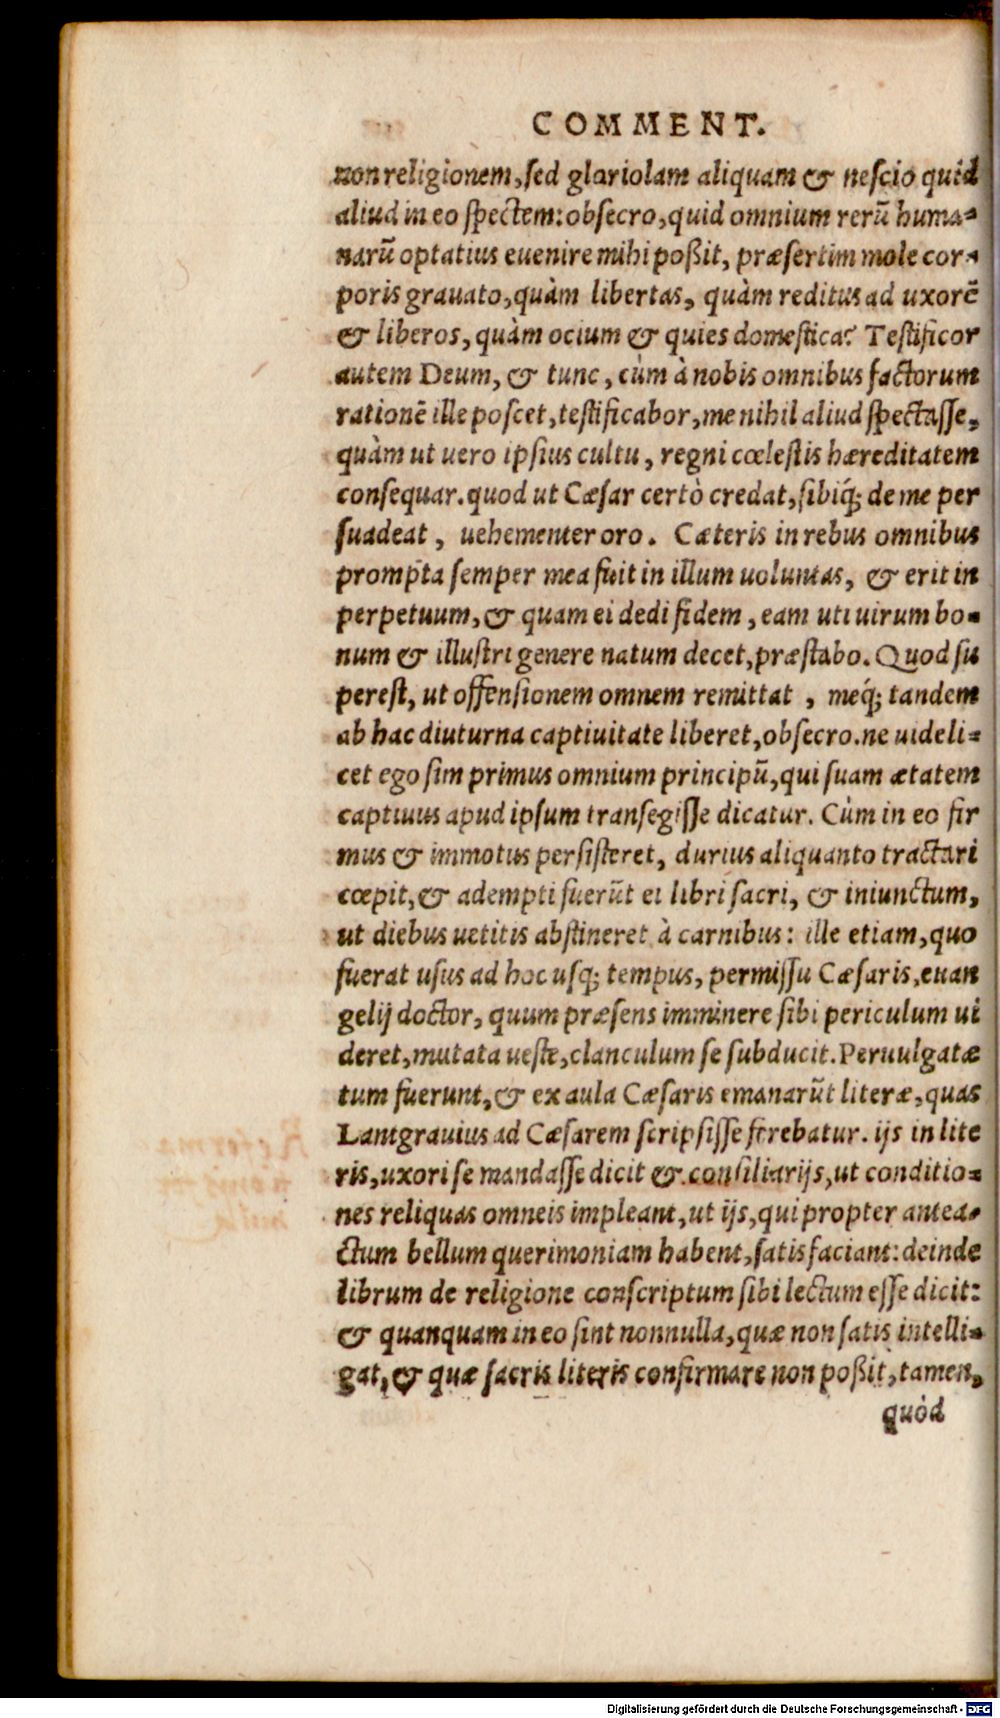 COMMENT.
non religionem, sed glariolam aliquam & nescio quid
aliud in eo spectem: obsecro, quid omnium rerũ huma-
narũ optatius euenire mihi poßit, præsertim mole cor-
poris grauato, quàm libertas, quàm reditus ad uxorẽ
& liberos, quàm ocium & quies domestica? Testificor
autem Deum, & tunc, cùm à nobis omnibus factorum
rationẽ ille poscet, testificabor, me nihil aliud spectasse,
quàm ut uero ipsius cultu, regni cœlestis hæreditatem
consequar. quod ut Cæsar certò credat, sibiq́; de me per
suadeat, uehementer oro. Cæteris in rebus omnibus
prompta semper mea fuit in illum uoluntas, & erit in
perpetuum, & quam ei dedi fidem, eam uti uirum bo-
num & illustri genere natum decet, præstabo. Quod su
perest, ut offensionem omnem remittat, meq́; tandem
ab hac diuturna captiuitate liberet, obsecro. ne uideli-
cet ego sim primus omnium principũ, qui suam ætatem
captiuus apud ipsum transegisse dicatur. Cùm in eo fir
mus & immotus persisteret, durius aliquanto tractari
cœpit, & adempti fuerũt ei libri sacri, & iniunctum,
ut diebus uetitis abstineret à carnibus: ille etiam, quo
fuerat usus ad hoc usq; tempus, permissu Cæsaris, euan
gelij doctor, quum præsens imminere sibi periculum ui
deret, mutata ueste, clanculum se subducit. Peruulgatæ
tum fuerunt, & ex aula Cæsaris emanarũt literæ, quas
Lantgrauius ad Cæsarem scripsisse ferebatur. ijs in lite
ris, uxori se mandasse dicit & consiliarijs, ut conditio-
nes reliquas omneis impleant, ut ijs, qui propter antea-
ctum bellum querimoniam habent, satisfaciant: deinde
librum de religione conscriptum sibi lectum esse dicit:
& quanquam in eo sint nonnulla, quæ non satis intelli-
gat, & quæ sacris literis confirmare non poßit, tamen,
quòd
Digitalisierung gefördert durch die Deutsche Forschungsgemeinschaft - DFG